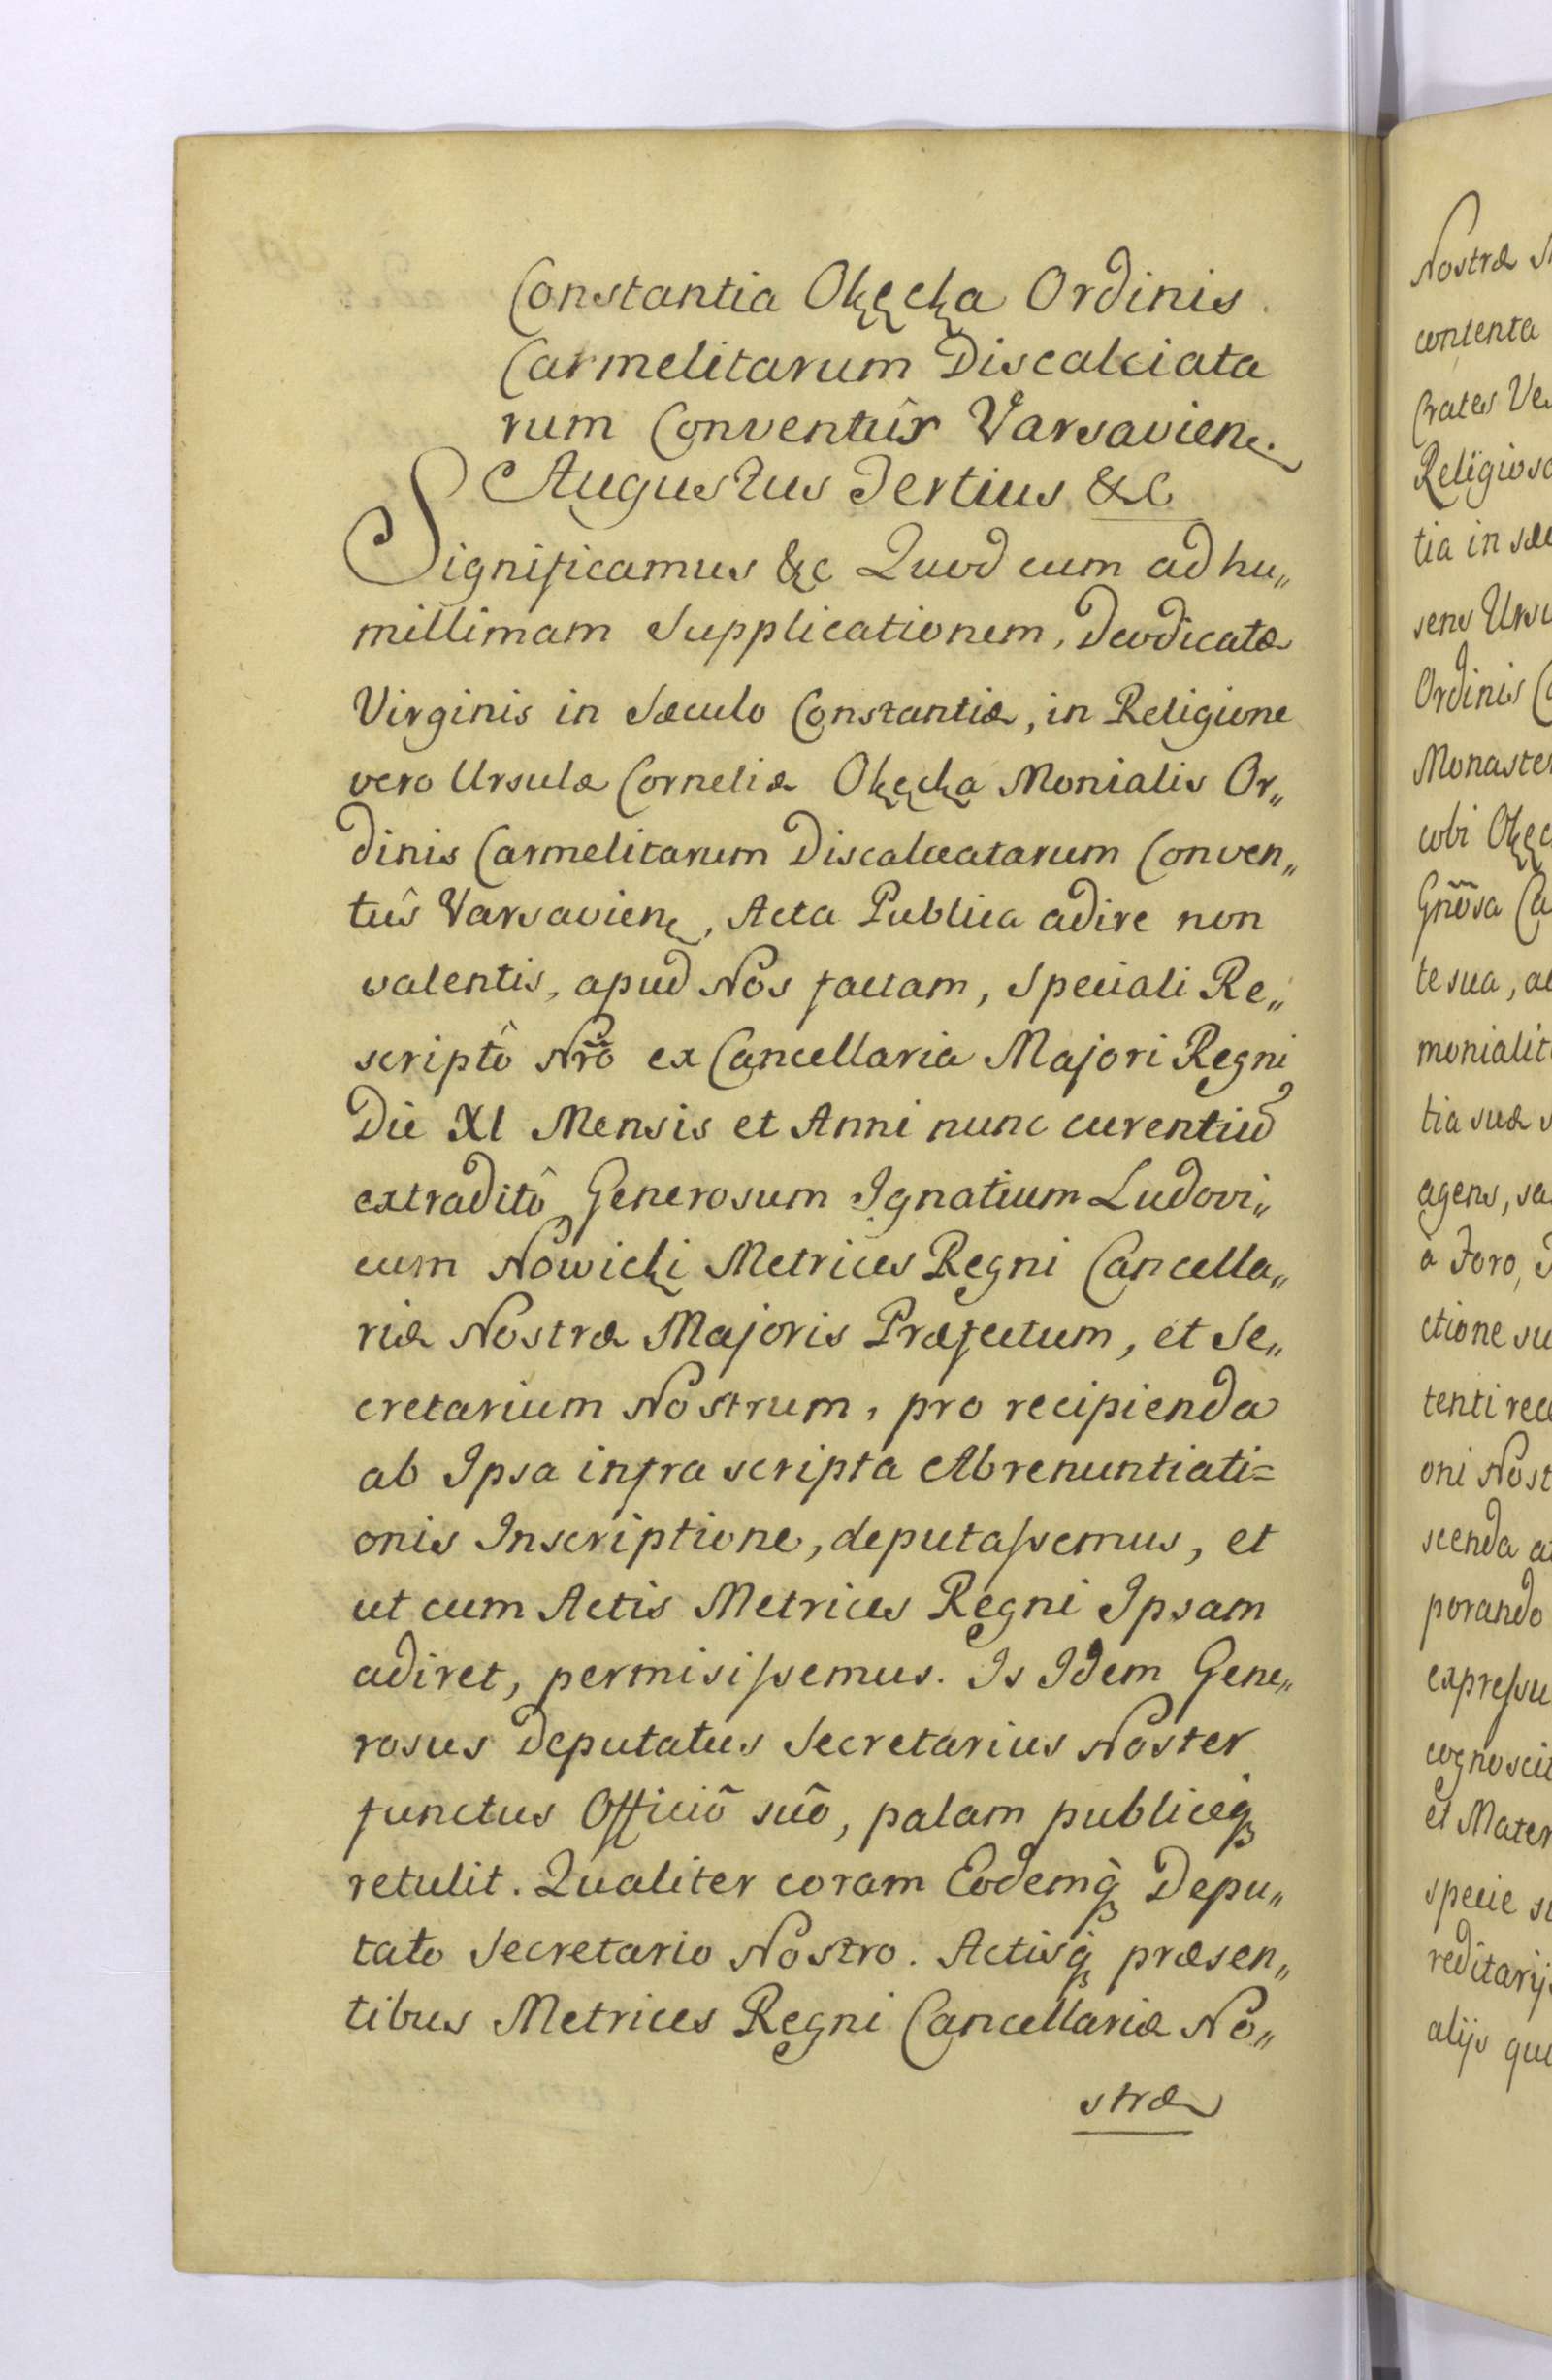 Constantia Okęcka Ordinis
Carmelitarum Discalciata
rum Conventûs Varsavien.
Augustus Tertius &c
Significamus &c Quod cum ad hu„
millimam Supplicationem, Deodicatæ
Virginis in Sæculo Constantiæ, in Religione
vero Ursulæ Corneliæ Okęcka Monialis Or„
dinis Carmelitarum Discalceatarum Conven„
tûs Varsavien, Acta Publica adire non
valentis, apud Nos factam, Speciali Re„
scriptô Nrõ ex Cancellaria Majori Regni
Die XI Mensis et Anni nunc curentium
extraditô Generosum Ignatium Ludovi„
cum Nowicki Metrices Regni Cancella„
riæ Nostræ Majoris Præfectum, et Se„
cretarium Nostrum, pro recipienda
ab Ipsa infra scripta Abrenuntiati=
onis Inscriptione, deputassemus, et
ut cum Actis Metrices Regni Ipsam
adiret, permisissemus. Is Idem Gene„
rosus Deputatus Secretarius Noster
functus Officiô suô, palam publiceq́
retulit. Qualiter coram Eodemq́ Depu„
tato Secretario Nostro. Actisq́ præsen„
tibus Metrices Regni Cancellariæ No„
stræ
Nostræ
contenta
Crates
Religiosa
tia in sæ
sens Ursu
Ordinis C
Monaster
cobi Okęc
Gnõsa Ca
te sua, a
monialit
tia suæ
agens, sa
à Foro,
ctione su
tenti rec
oni Nost
scenda a
porando
expressu
cognoscit
et Mater
specie s
reditarijs
alijs qu